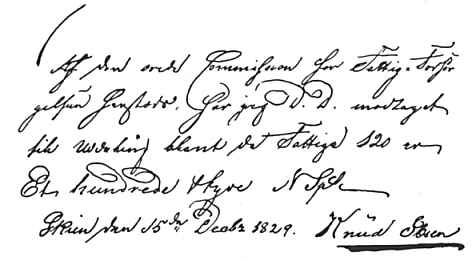 Af den ordr Commission for Fattig-Forsör
gelsen har jeg D. D. modtaget
til Uddeling blant de Fattige 120 er
Et hundrede & tyve N Spl
Skien den 15de Decbr 1829. Knüd Steen